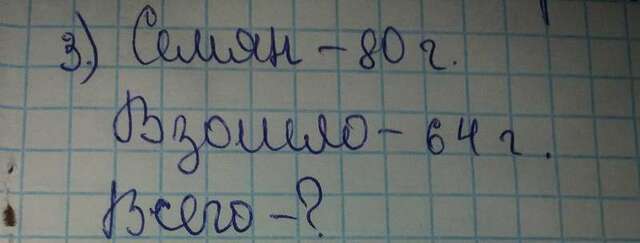 3.) Семян - 80 г.
Взошло - 64 г.
Всего - ?